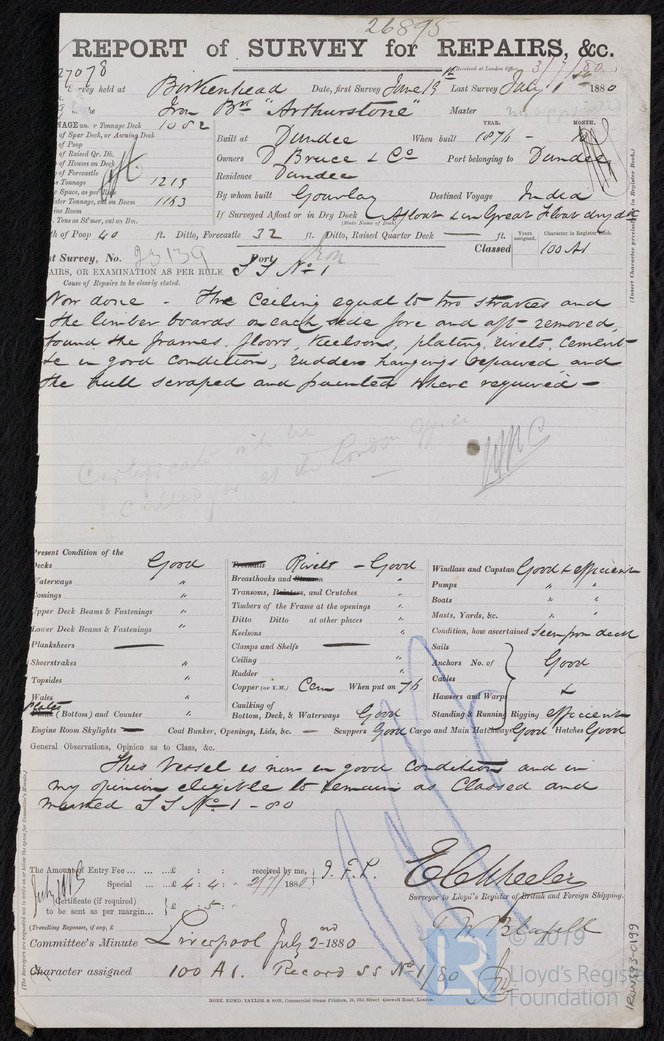 26895
REPORT of SURVEY for REPAIRS, &c.
27078
Received at London Office 3/7/80
Survey held at Birkenhead Date, first Survey June 19th Last Survey July 1st 1880
Iron Bk "Arthurstone" Master
TONNAGE under Tonnage Deck 1082
of Spar Deck, or Awning Deck
of Poop
of Raised Qr. Dk.
of Houses on Deck
of Forecastle
Tonnage 1219
Register Tonnage, cut on Beam 1163
Engine Room
YEAR. MONTH.
Built at Dundee When built 1876 - 10
Owners D Bruce & Co Port belonging to Dundee
Residence Dundee
By whom built Gourlay Destined Voyage India
If Surveyed Afloat or in Dry Dock Afloat & in Great Float dry dk
(State Name of Dock.)
Length of Poop 40 ft. Ditto, Forecastle 32 ft. Ditto, Raised Quarter Deck — ft.
Years assigned. Character in Register Book.
Last Survey, No. 23139 Port Classed 100 A1
Iron
REPAIRS, OR EXAMINATION AS PER RULE S S No 1
Cause of Repairs to be clearly stated.
(Insert Character precisely as in Register Book.)
Now done - The Ceiling equal to two strakes and
the limber boards on each side fore and aft removed,
found the frames, floors, keelsons, plating, rivets, cement
&c in good condition, rudder hangings repaired and
the hull scraped and painted where required -
Certificate will be
called for at the London Office
Present Condition of the
Decks Good
Waterways "
Comings "
Upper Deck Beams & Fastenings "
Lower Deck Beams & Fastenings "
Planksheers —
Sheerstrakes "
Topsides "
Wales "
Plates (Bottom) and Counter "
Engine Room Skylights — Coal Bunker, Openings, Lids, &c. — Scuppers Good Cargo and Main Hatchways Good Hatches Good
Treenails Rivets - Good
Breasthooks and Stemson "
Transoms, Pointers, and Crutches "
Timbers of the Frame at the openings "
Ditto Ditto at other places "
Keelsons "
Clamps and Shelfs —
Ceiling "
Rudder "
Copper (or Y.M.) Cem When put on 76
Caulking of
Bottom, Deck, & Waterways Good
Windlass and Capstan Good & efficient
Pumps " "
Boats " "
Masts, Yards, &c. " "
Condition, how ascertained Seen from deck
Sails
Anchors No. of Good
Cables
Hawsers and Warps &
Standing & Running Rigging efficient
General Observations, Opinion as to Class, &c.
This Vessel is now in good Condition and in
my opinion eligible to remain as Classed and
marked S S No 1 - 80
The Amount of Entry Fee ... £ : : received by me, J. F. L.
Special ... £ 4 : 4 : 2/7/1880
Certificate (if required)
to be sent as per margin... £ : 5 :
(Travelling Expenses, if any, £
E C Wheeler
Surveyor to Lloyd's Register of British and Foreign Shipping.
Committee's Minute Liverpool July 2nd 1880
Character assigned 100 A1. Record SS No 1/80
ROBT. EDMD. TAYLOR & SON, Commercial Steam Printers, 19, Old Street Goswell Road, London.
© 2019
Lloyd's Register
Foundation
IRON583-0199